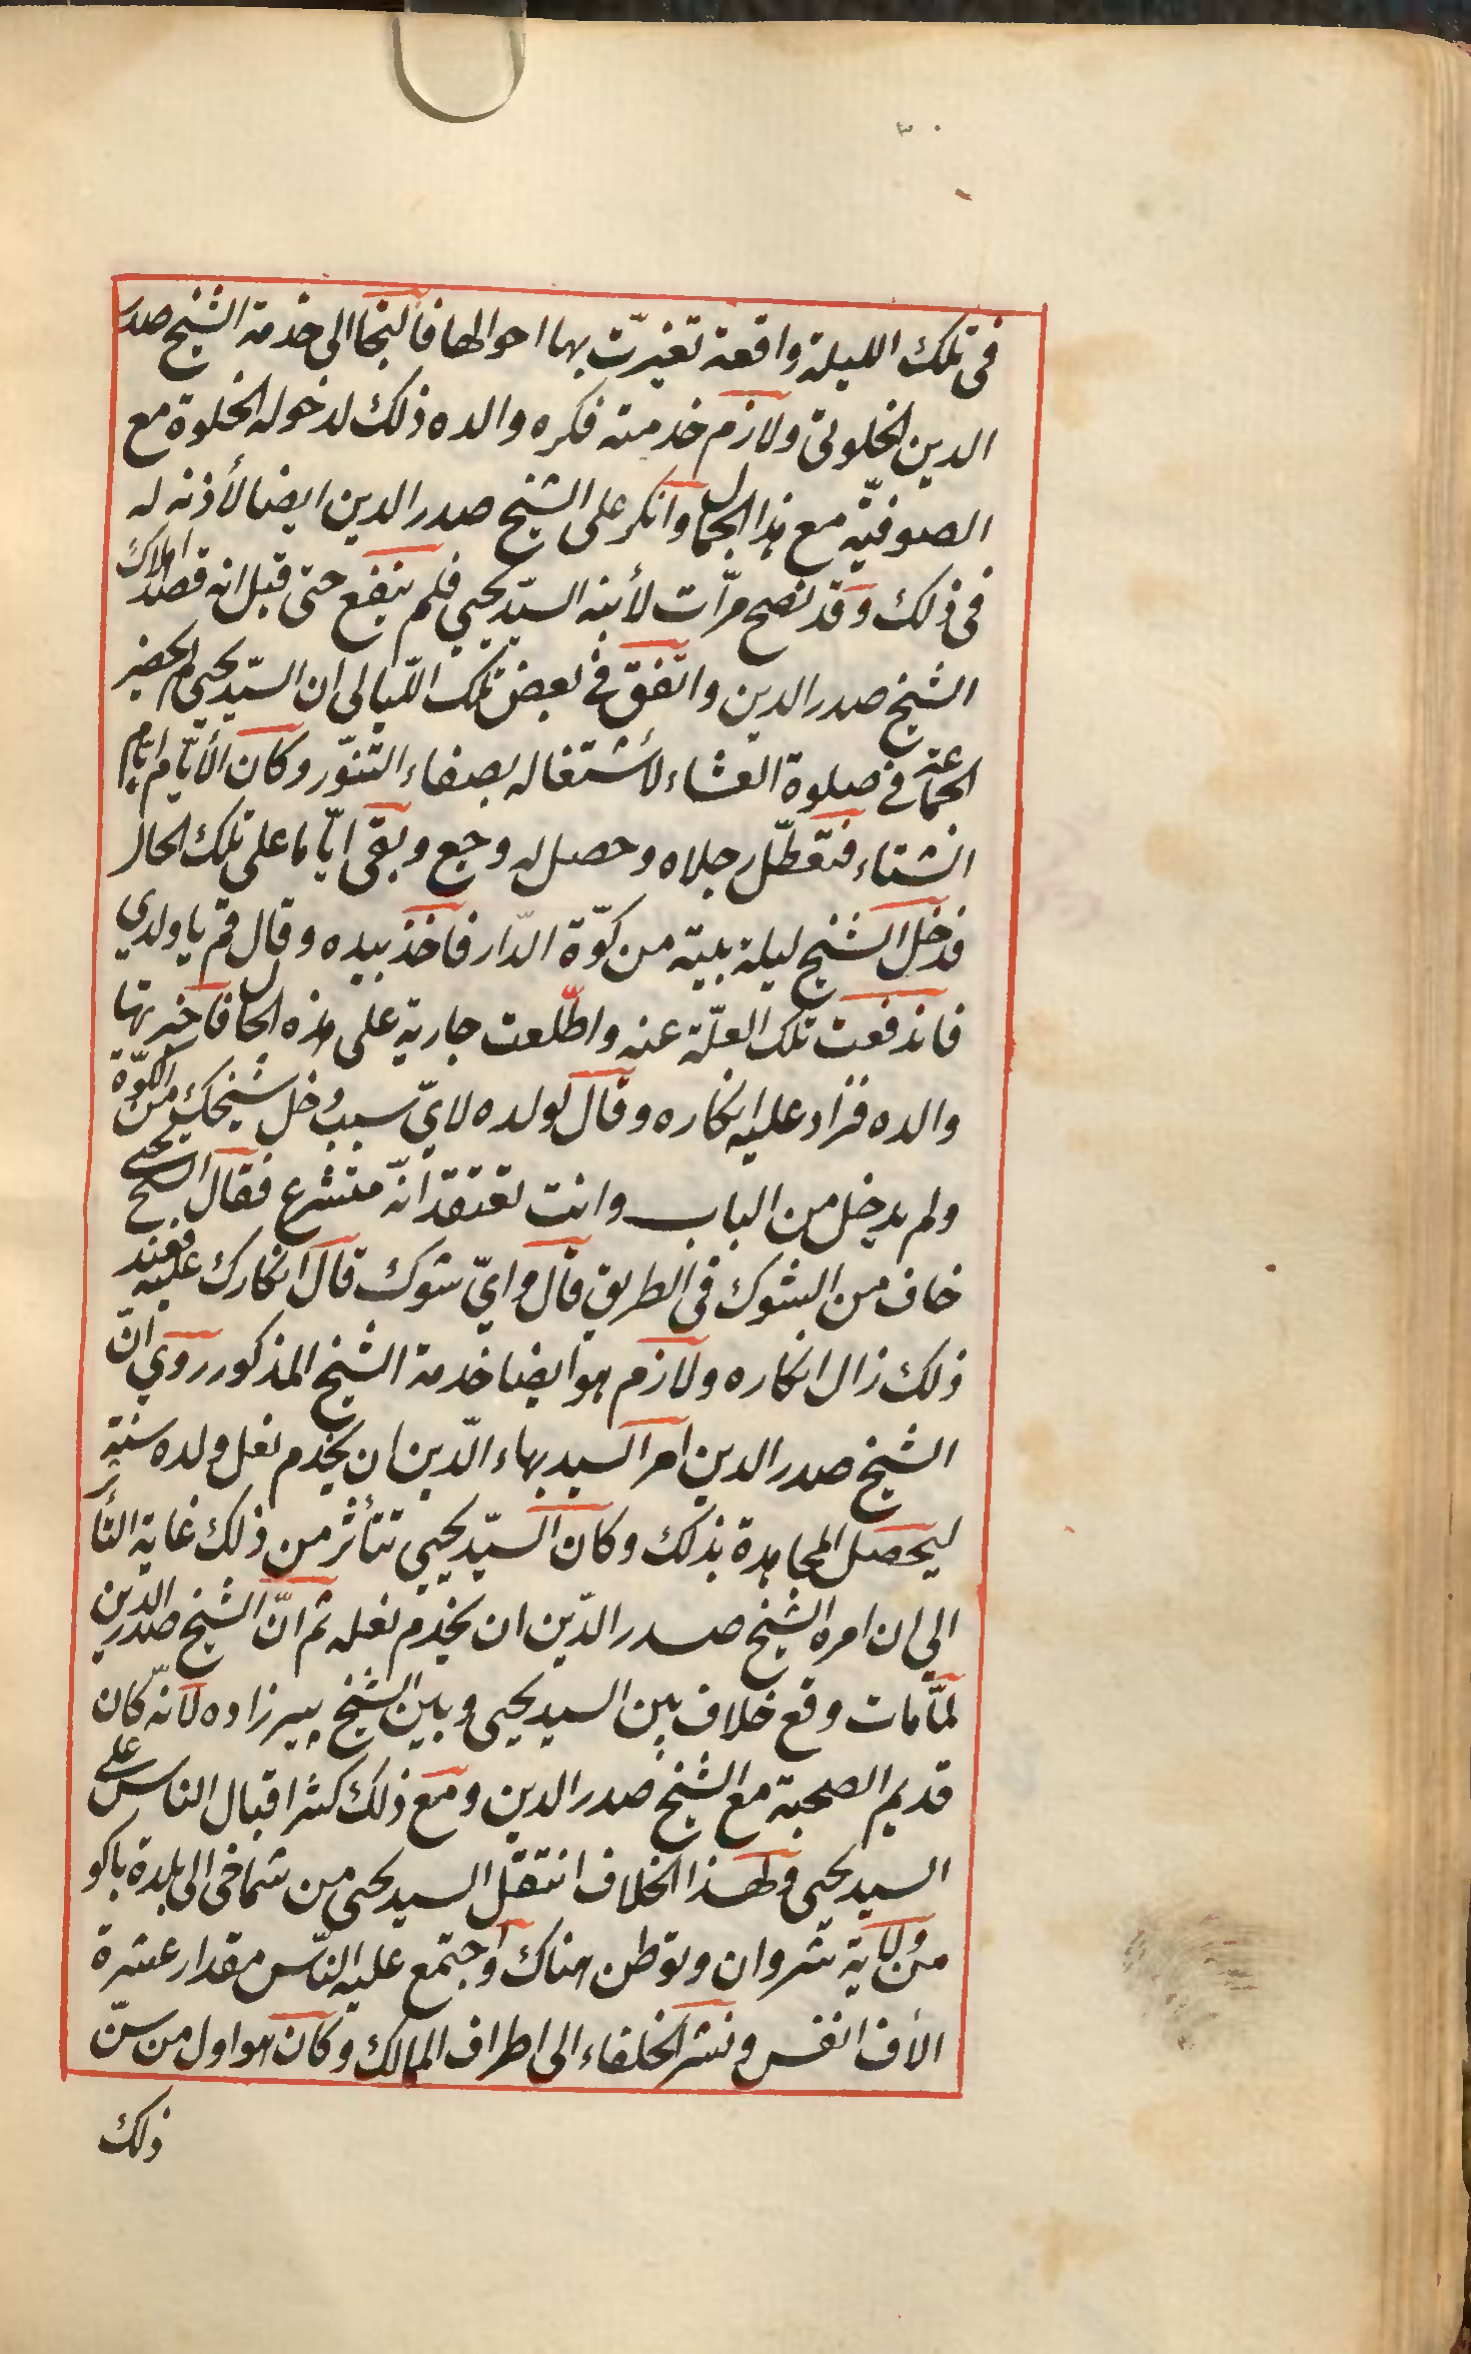 فى تلك الليلة واقعة تغيّرت بها احوالها فالتجا الى خدمة الشيخ صدر
الدين الخلوتى ولازم خدمته فكره والده ذلك لدخوله الخلوة مع
الصوفيّه مع هذا الجمال وانكر على الشيخ صدر الدين ايضا لأذنه له
فى ذلك وقد نصح مرّات لأبنه السيّد يحيى فلم ينفع حتى قيل انه قصد اهلاك
الشيخ صدر الدين واتّفق فى بعض تلك اللّيالى ان السيّد يحيى لم يحضر
الجماعة فى صلوة العشاء لأشتغاله بصفاء التنوّر وكان الأيّام ايّام
الشتاء فتعطّل رجلاه وحصل له وجع وبقى ايّاما على تلك الحال
فدخل الشيخ ليلة بيته من كوّة الدّار فاخذ بيده وقال قم يا ولدي
فاندفعت تلك العلّة عنه واطّلعت جارية على هذه الحال فاخبرتها
والده فزاد عليه انكاره وقال لولده لايّ سبب دخل شيخك من الكوّة
ولم يدخل من الباب وانت تعتقد انّه متشرع فقال السيد يحيى
خاف من الشوك فى الطريق قال وايّ شوك قال انكارك عليه فعند
ذلك زال انكاره ولازم هو ايضا خدمة الشيخ المذكور روي انّ
الشيخ صدر الدين امر السيد بهاء الدّين ان يخدم نعل ولده سنة
ليحصل المجاهدة بذلك وكان السيّد يحيى تتأثر من ذلك غاية التأثر
الى ان امره الشيخ صدر الدّين ان يخدم نعله ثم انّ الشيخ صدر الدين
لمّا مات وقع خلاف بين السيد يحيى وبين الشيخ پيرزاده لانّه كان
قديم الصحبة مع الشيخ صدر الدين ومع ذلك كثر اقبال الناس على
السيد يحيى ولهذا الخلاف انتقل السيد يحيى من شماخى الى بلدة باكو
من ولاية شروان وتوطن هناك واجتمع عليه النّاس مقدار عشرة
الأف انفس ونشر الخلفاء الى اطراف الممالك وكان هو اول من سنّ
ذلك